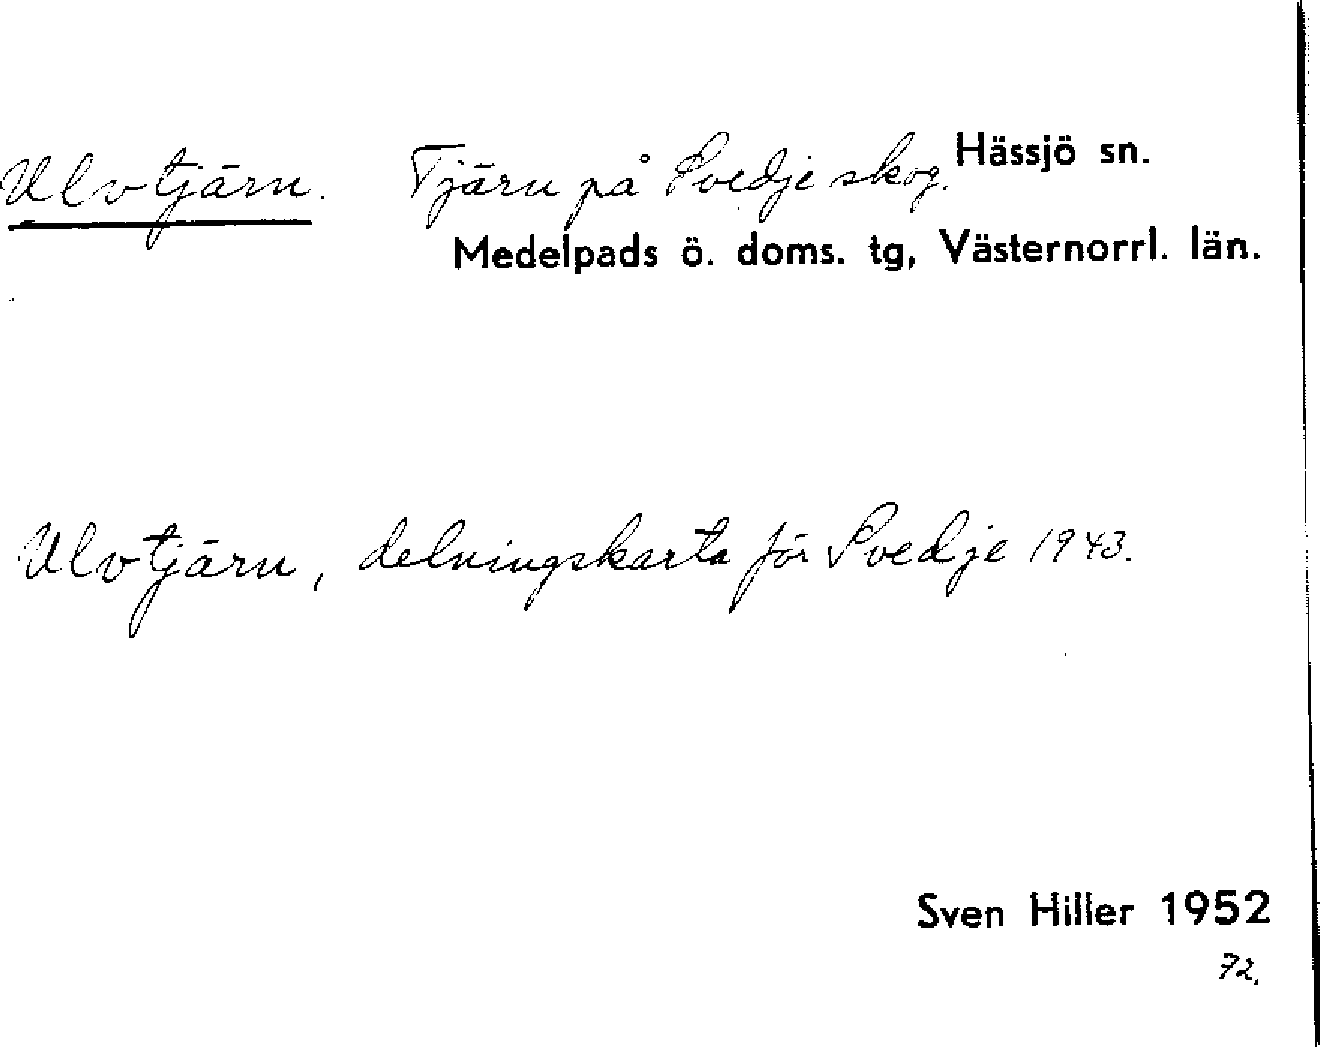 Ulvtjärn. Tjärn på Svedje skog. Hässjö sn.
Medelpads ö. doms. tg, Västernorrl. län.
Ulvtjärn, delningskarta för Svedje 1943.
Sven Hiller 1952
72.